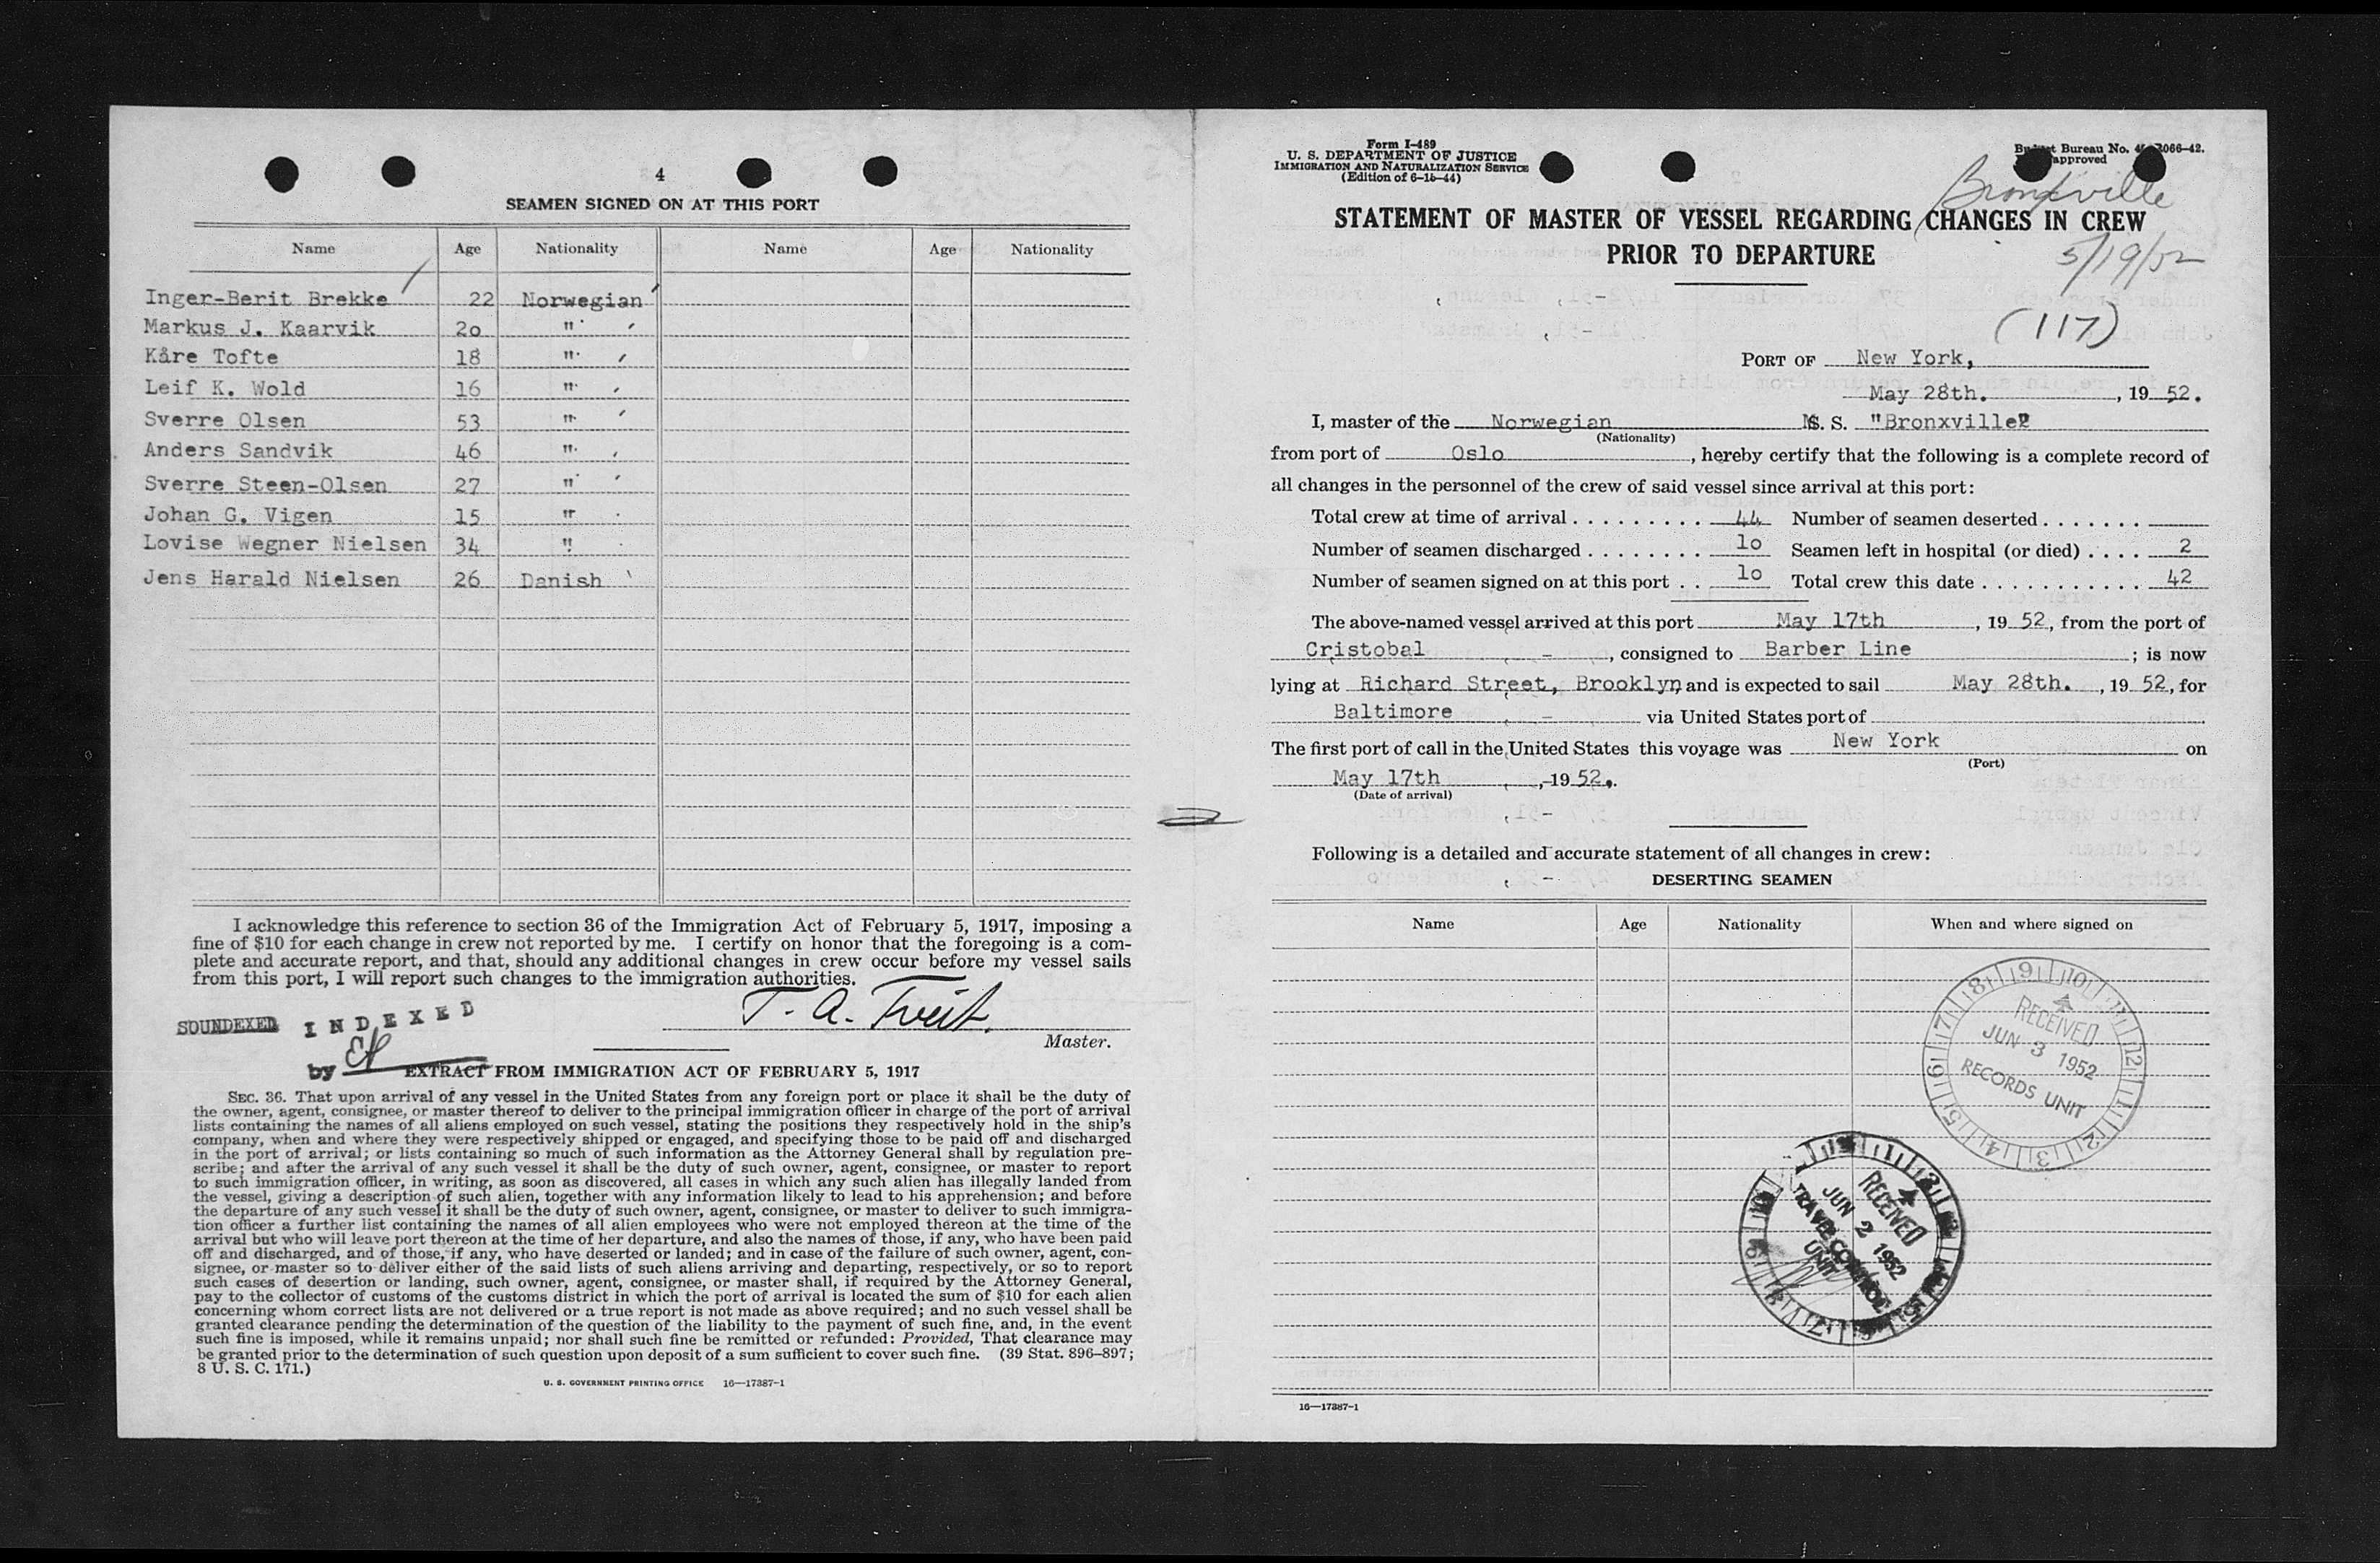 4
SEAMEN SIGNED ON AT THIS PORT
Name Age Nationality Name Age Nationality
Inger-Berit Brekke 22 Norwegian
Markus J. Kaarvik 20 "
Kåre Tofte 18 "
Leif K. Wold 16 "
Sverre Olsen 53 "
Anders Sandvik 46 "
Sverre Steen-Olsen 27 "
Johan G. Vigen 15 "
Lovise Wegner Nielsen 34 "
Jens Harald Nielsen 26 Danish
I acknowledge this reference to section 36 of the Immigration Act of February 5, 1917, imposing a
fine of $10 for each change in crew not reported by me. I certify on honor that the foregoing is a com-
plete and accurate report, and that, should any additional changes in crew occur before my vessel sails
from this port, I will report such changes to the immigration authorities.
SOUNDEXED INDEXED
T. A.
Master.
by
EXTRACT FROM IMMIGRATION ACT OF FEBRUARY 5, 1917
SEC. 36. That upon arrival of any vessel in the United States from any foreign port or place it shall be the duty of
the owner, agent, consignee, or master thereof to deliver to the principal immigration officer in charge of the port of arrival
lists containing the names of all aliens employed on such vessel, stating the positions they respectively hold in the ship's
company, when and where they were respectively shipped or engaged, and specifying those to be paid off and discharged
in the port of arrival; or lists containing so much of such information as the Attorney General shall by regulation pre-
scribe; and after the arrival of any such vessel it shall be the duty of such owner, agent, consignee, or master to report
to such immigration officer, in writing, as soon as discovered, all cases in which any such alien has illegally landed from
the vessel, giving a description of such alien, together with any information likely to lead to his apprehension; and before
the departure of any such vessel it shall be the duty of such owner, agent, consignee, or master to deliver to such immigra-
tion officer a further list containing the names of all alien employees who were not employed thereon at the time of the
arrival but who will leave port thereon at the time of her departure, and also the names of those, if any, who have been paid
off and discharged, and of those, if any, who have deserted or landed; and in case of the failure of such owner, agent, con-
signee, or master so to deliver either of the said lists of such aliens arriving and departing, respectively, or so to report
such cases of desertion or landing, such owner, agent, consignee, or master shall, if required by the Attorney General,
pay to the collector of customs of the customs district in which the port of arrival is located the sum of $10 for each alien
concerning whom correct lists are not delivered or a true report is not made as above required; and no such vessel shall be
granted clearance pending the determination of the question of the liability to the payment of such fine, and, in the event
such fine is imposed, while it remains unpaid; nor shall such fine be remitted or refunded: Provided, That clearance may
be granted prior to the determination of such question upon deposit of a sum sufficient to cover such fine. (39 Stat. 896-897;
8 U. S. C. 171.)
U. S. GOVERNMENT PRINTING OFFICE 16—17387-1
Form I-489
U. S. DEPARTMENT OF JUSTICE
IMMIGRATION AND NATURALIZATION SERVICE
(Edition of 6-15-44)
Bureau No. 066-42.
approved
Bronxville
STATEMENT OF MASTER OF VESSEL REGARDING CHANGES IN CREW
PRIOR TO DEPARTURE
5/19/52
(117)
PORT OF New York,
May 28th. , 19 52.
I, master of the Norwegian S. S. "Bronxville"
(Nationality)
from port of Oslo , hereby certify that the following is a complete record of
all changes in the personnel of the crew of said vessel since arrival at this port:
Total crew at time of arrival . . . . . . . . . . 44 Number of seamen deserted . . . . . . .
Number of seamen discharged . . . . . . . . 10 Seamen left in hospital (or died) . . . . 2
Number of seamen signed on at this port . . 10 Total crew this date . . . . . . . . . . . 42
The above-named vessel arrived at this port May 17th , 19 52, from the port of
Cristobal , consigned to Barber Line ; is now
lying at Richard Street, Brooklyn, and is expected to sail May 28th. , 19 52, for
Baltimore via United States port of
The first port of call in the United States this voyage was New York on
(Port)
May 17th , 19 52.
(Date of arrival)
Following is a detailed and accurate statement of all changes in crew:
DESERTING SEAMEN
Name Age Nationality When and where signed on
RECEIVED
JUN 3 1952
RECORDS UNIT
RECEIVED
JUN 2 1952
TRAVEL CONTROL
UNIT
16—17387-1